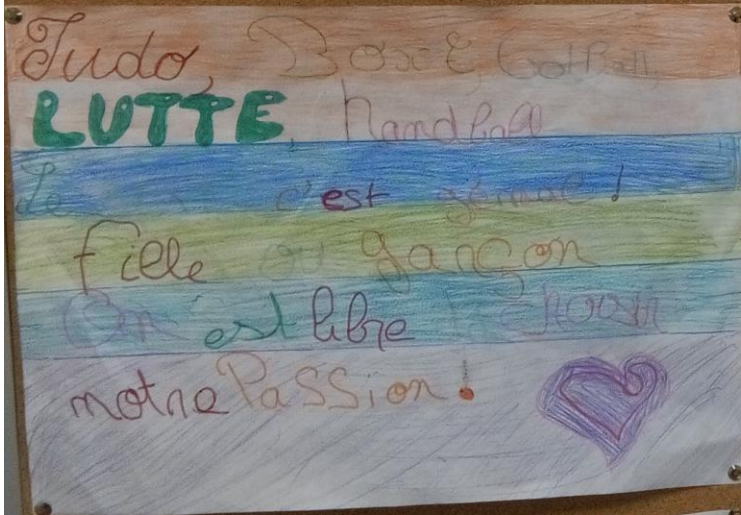 Judo, Boxe, Football,
LUTTE, handball
Le c'est génial !
fille ou garçon
On est libre choisir
notre Passion !